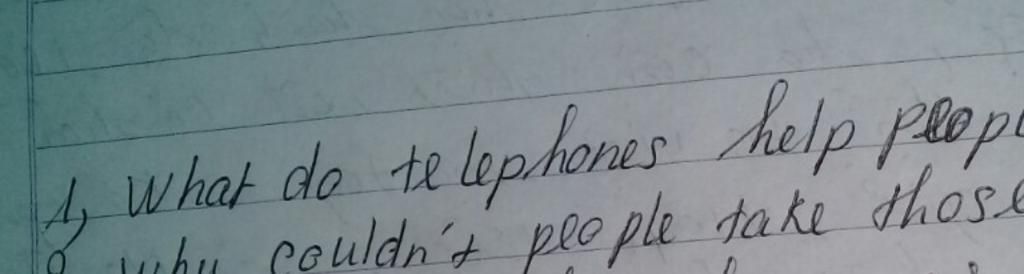 1, What do telephones help peop
2 why couldn't people take those